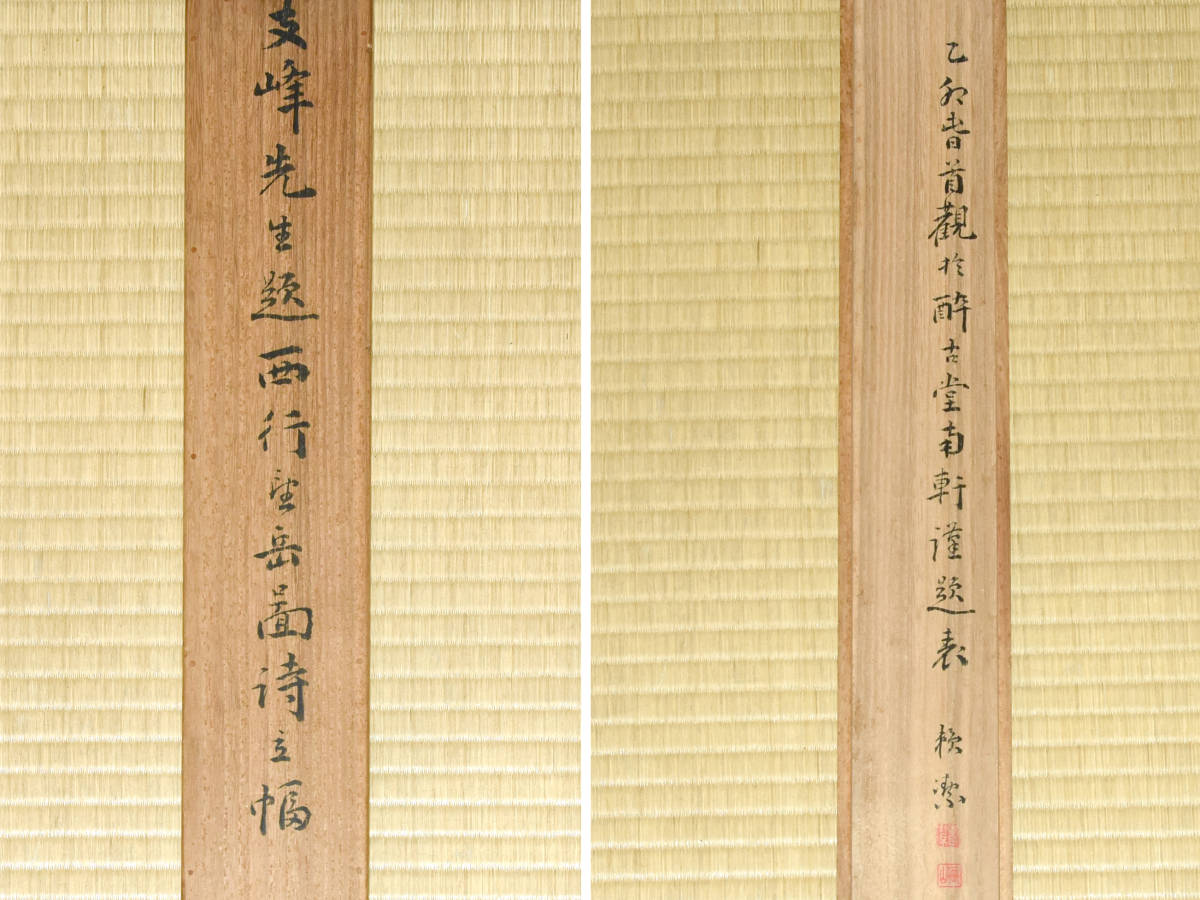 支峰先生題西行望岳圖詩立幅
乙卯春首觀於醉古堂南軒謹題表 賴潔